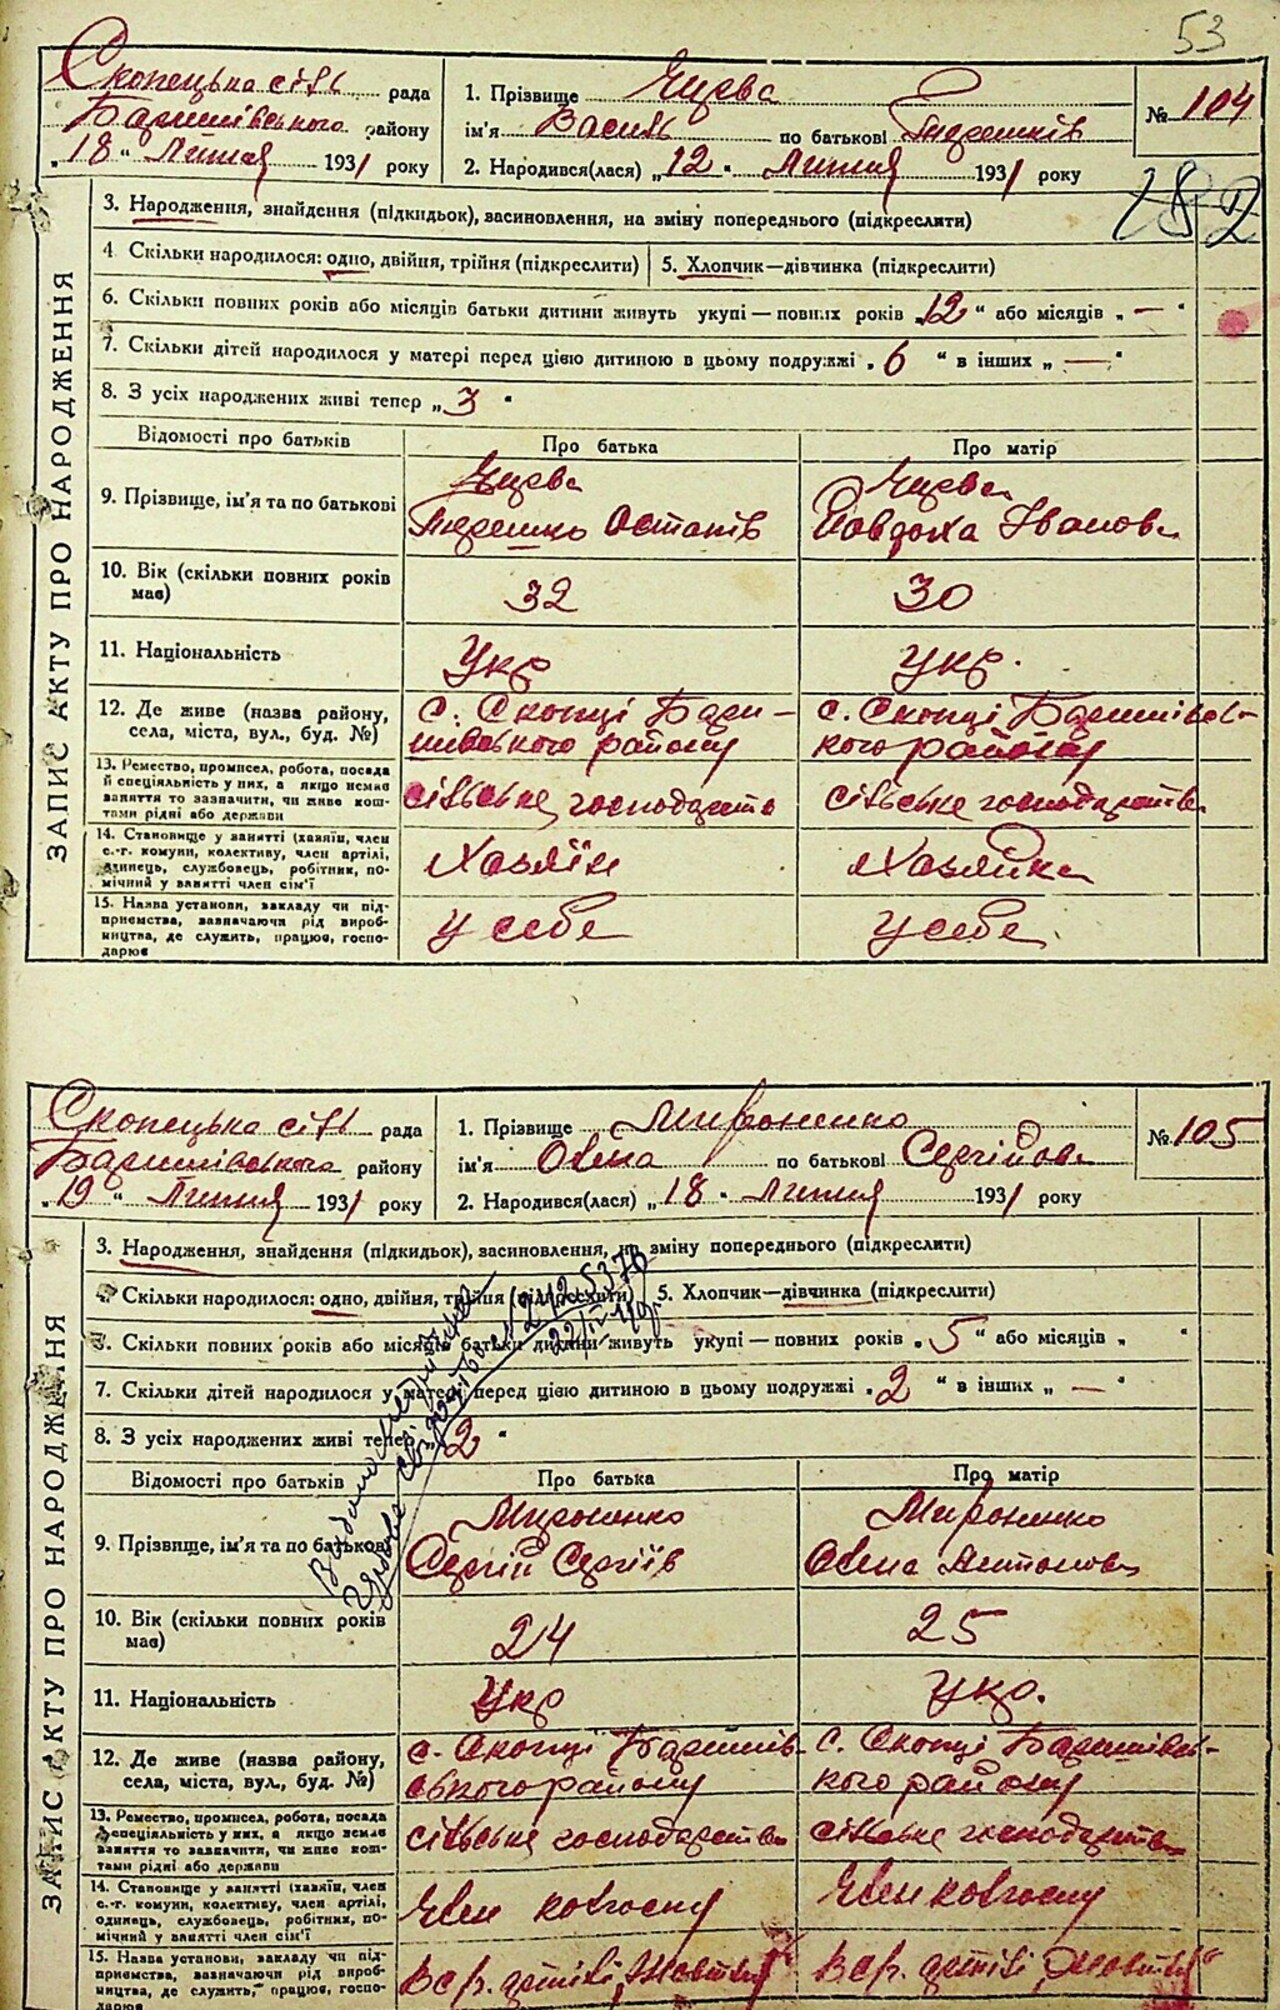 53
Скопецька сіль рада
Баришівського району
„18“ Липня 1931 року
1. Прізвище
ім'я Василь по батькові
2. Народився(лася) „12“ Липня 1931 року
№ 104
3. Народження, знайдення (підкидьок), засиновлення, на зміну попереднього (підкреслити)
4 Скільки народилося: одно, двійня, трійня (підкреслити)
5. Хлопчик—дівчинка (підкреслити)
6. Скільки повних років або місяців батьки дитини живуть укупі — повних років „12“ або місяців „—“
7. Скільки дітей народилося у матері перед цією дитиною в цьому подружжі „6“ в інших „—“
8. З усіх народжених живі тепер „3“
ЗАПИС АКТУ ПРО НАРОДЖЕННЯ
Відомості про батьків
Про батька
Про матір
9. Прізвище, ім'я та по батькові
Остапів
Йовдоха Іванова
10. Вік (скільки повних років має)
32
30
11. Національність
Укр
Укр.
12. Де живе (назва району,
села, міста, вул., буд. №)
с. Скопці Бари–
шівського району
с. Скопці Баришівсь–
кого району
13. Ремество, промисел, робота, посада
й спеціяльність у них, а якщо немає
заняття то зазначити, чи живе кош-
тами рідні або держави
сільське господарство
сільське господарство
14. Становище у занятті (хазяїн, член
с.-г. комуни, колективу, член артілі,
одинець, службовець, робітник, по-
мічний у занятті член сім'ї
Хазяїн
Хазяйка
15. Назва установи, закладу чи під-
приємства, зазначаючи рід вироб-
ництва, де служить, працює, госпо-
дарює
у себе
у себе
Скопецька сіль рада
Баришівського району
„19“ Липня 1931 року
1. Прізвище Мироненко
ім'я Олена по батькові Сергійова
2. Народився(лася) „18“ Липня 1931 року
№ 105
3. Народження, знайдення (підкидьок), засиновлення, на зміну попереднього (підкреслити)
4. Скільки народилося: одно, двійня, трійня (підкреслити)
5. Хлопчик—дівчинка (підкреслити)
6. Скільки повних років або місяців батьки дитини живуть укупі — повних років „5“ або місяців „ “
7. Скільки дітей народилося у матері перед цією дитиною в цьому подружжі „2“ в інших „—“
8. З усіх народжених живі тепер „2“
ЗАПИС АКТУ ПРО НАРОДЖЕННЯ
Відомості про батьків
Про батька
Про матір
9. Прізвище, ім'я та по батькові
Мироненко
Сергій Сергіїв
Мироненко
Олена Антонова
10. Вік (скільки повних років має)
24
25
11. Національність
Укр
Укр.
12. Де живе (назва району,
села, міста, вул., буд. №)
с. Скопці Баришів–
ського району
с. Скопці Баришівсь–
кого району
13. Ремество, промисел, робота, посада
й спеціяльність у них, а якщо немає
заняття то зазначити, чи живе кош-
тами рідні або держави
сільське господарство
сільське господарство
14. Становище у занятті (хазяїн, член
с.-г. комуни, колективу, член артілі,
одинець, службовець, робітник, по-
мічний у занятті член сім'ї
Член колгоспу
Член колгоспу
15. Назва установи, закладу чи під-
приємства, зазначаючи рід вироб-
ництва, де служить, працює, госпо-
дарює